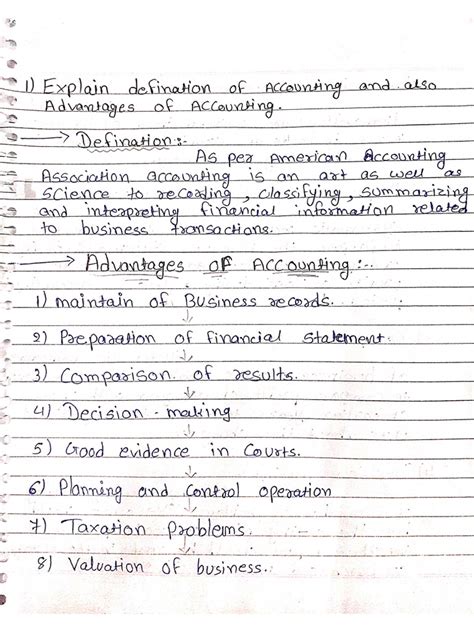 1) Explain defination of Accounting and also
Advantages of Accounting.
→ Defination:-
As per American Accounting
Association accounting is an art as well as
science to recording, classifying, summarizing
and interpreting financial information related
to business transactions.
→ Advantages OF Accounting:-
1) maintain of Business records.
↓
2) Preparation of financial statement.
↓
3) Comparison of results.
↓
4) Decision-making
↓
5) Good evidence in Courts.
↓
6) Planning and Control operation
↓
7) Taxation Problems.
↓
8) Valuation of business.